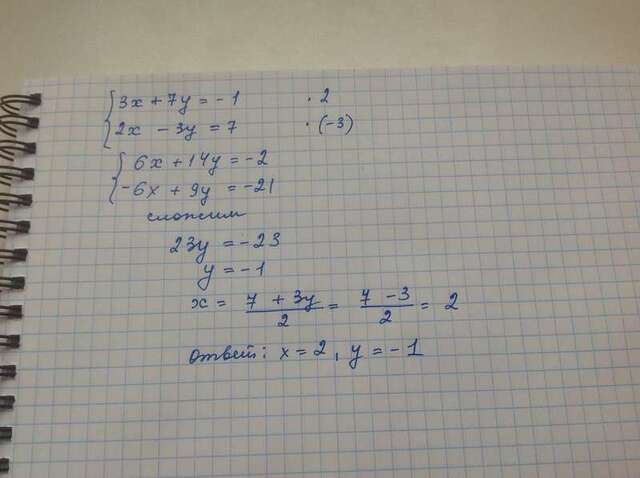 3x + 7y = -1 · 2
2x - 3y = 7 · (-3)
6x + 14y = -2
-6x + 9y = -21
сложим
23y = -23
y = -1
x = (7 + 3y)/2 = (7 - 3)/2 = 2
ответ: x = 2, y = -1